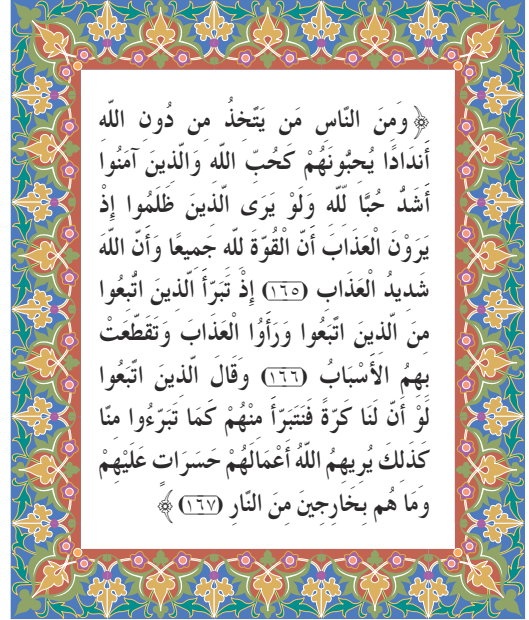 ﴿ وَمِنَ النَّاسِ مَن يَتَّخِذُ مِن دُونِ اللَّهِ
أَندَادًا يُحِبُّونَهُمْ كَحُبِّ اللَّهِ وَالَّذِينَ آمَنُوا
أَشَدُّ حُبًّا لِّلَّهِ وَلَوْ يَرَى الَّذِينَ ظَلَمُوا إِذْ
يَرَوْنَ الْعَذَابَ أَنَّ الْقُوَّةَ لِلَّهِ جَمِيعًا وَأَنَّ اللَّهَ
شَدِيدُ الْعَذَابِ (١٦٥) إِذْ تَبَرَّأَ الَّذِينَ اتُّبِعُوا
مِنَ الَّذِينَ اتَّبَعُوا وَرَأَوُا الْعَذَابَ وَتَقَطَّعَتْ
بِهِمُ الأَسْبَابُ (١٦٦) وَقَالَ الَّذِينَ اتَّبَعُوا
لَوْ أَنَّ لَنَا كَرَّةً فَنَتَبَرَّأَ مِنْهُمْ كَمَا تَبَرَّءُوا مِنَّا
كَذَلِكَ يُرِيهِمُ اللَّهُ أَعْمَالَهُمْ حَسَرَاتٍ عَلَيْهِمْ
وَمَا هُم بِخَارِجِينَ مِنَ النَّارِ (١٦٧) ﴾